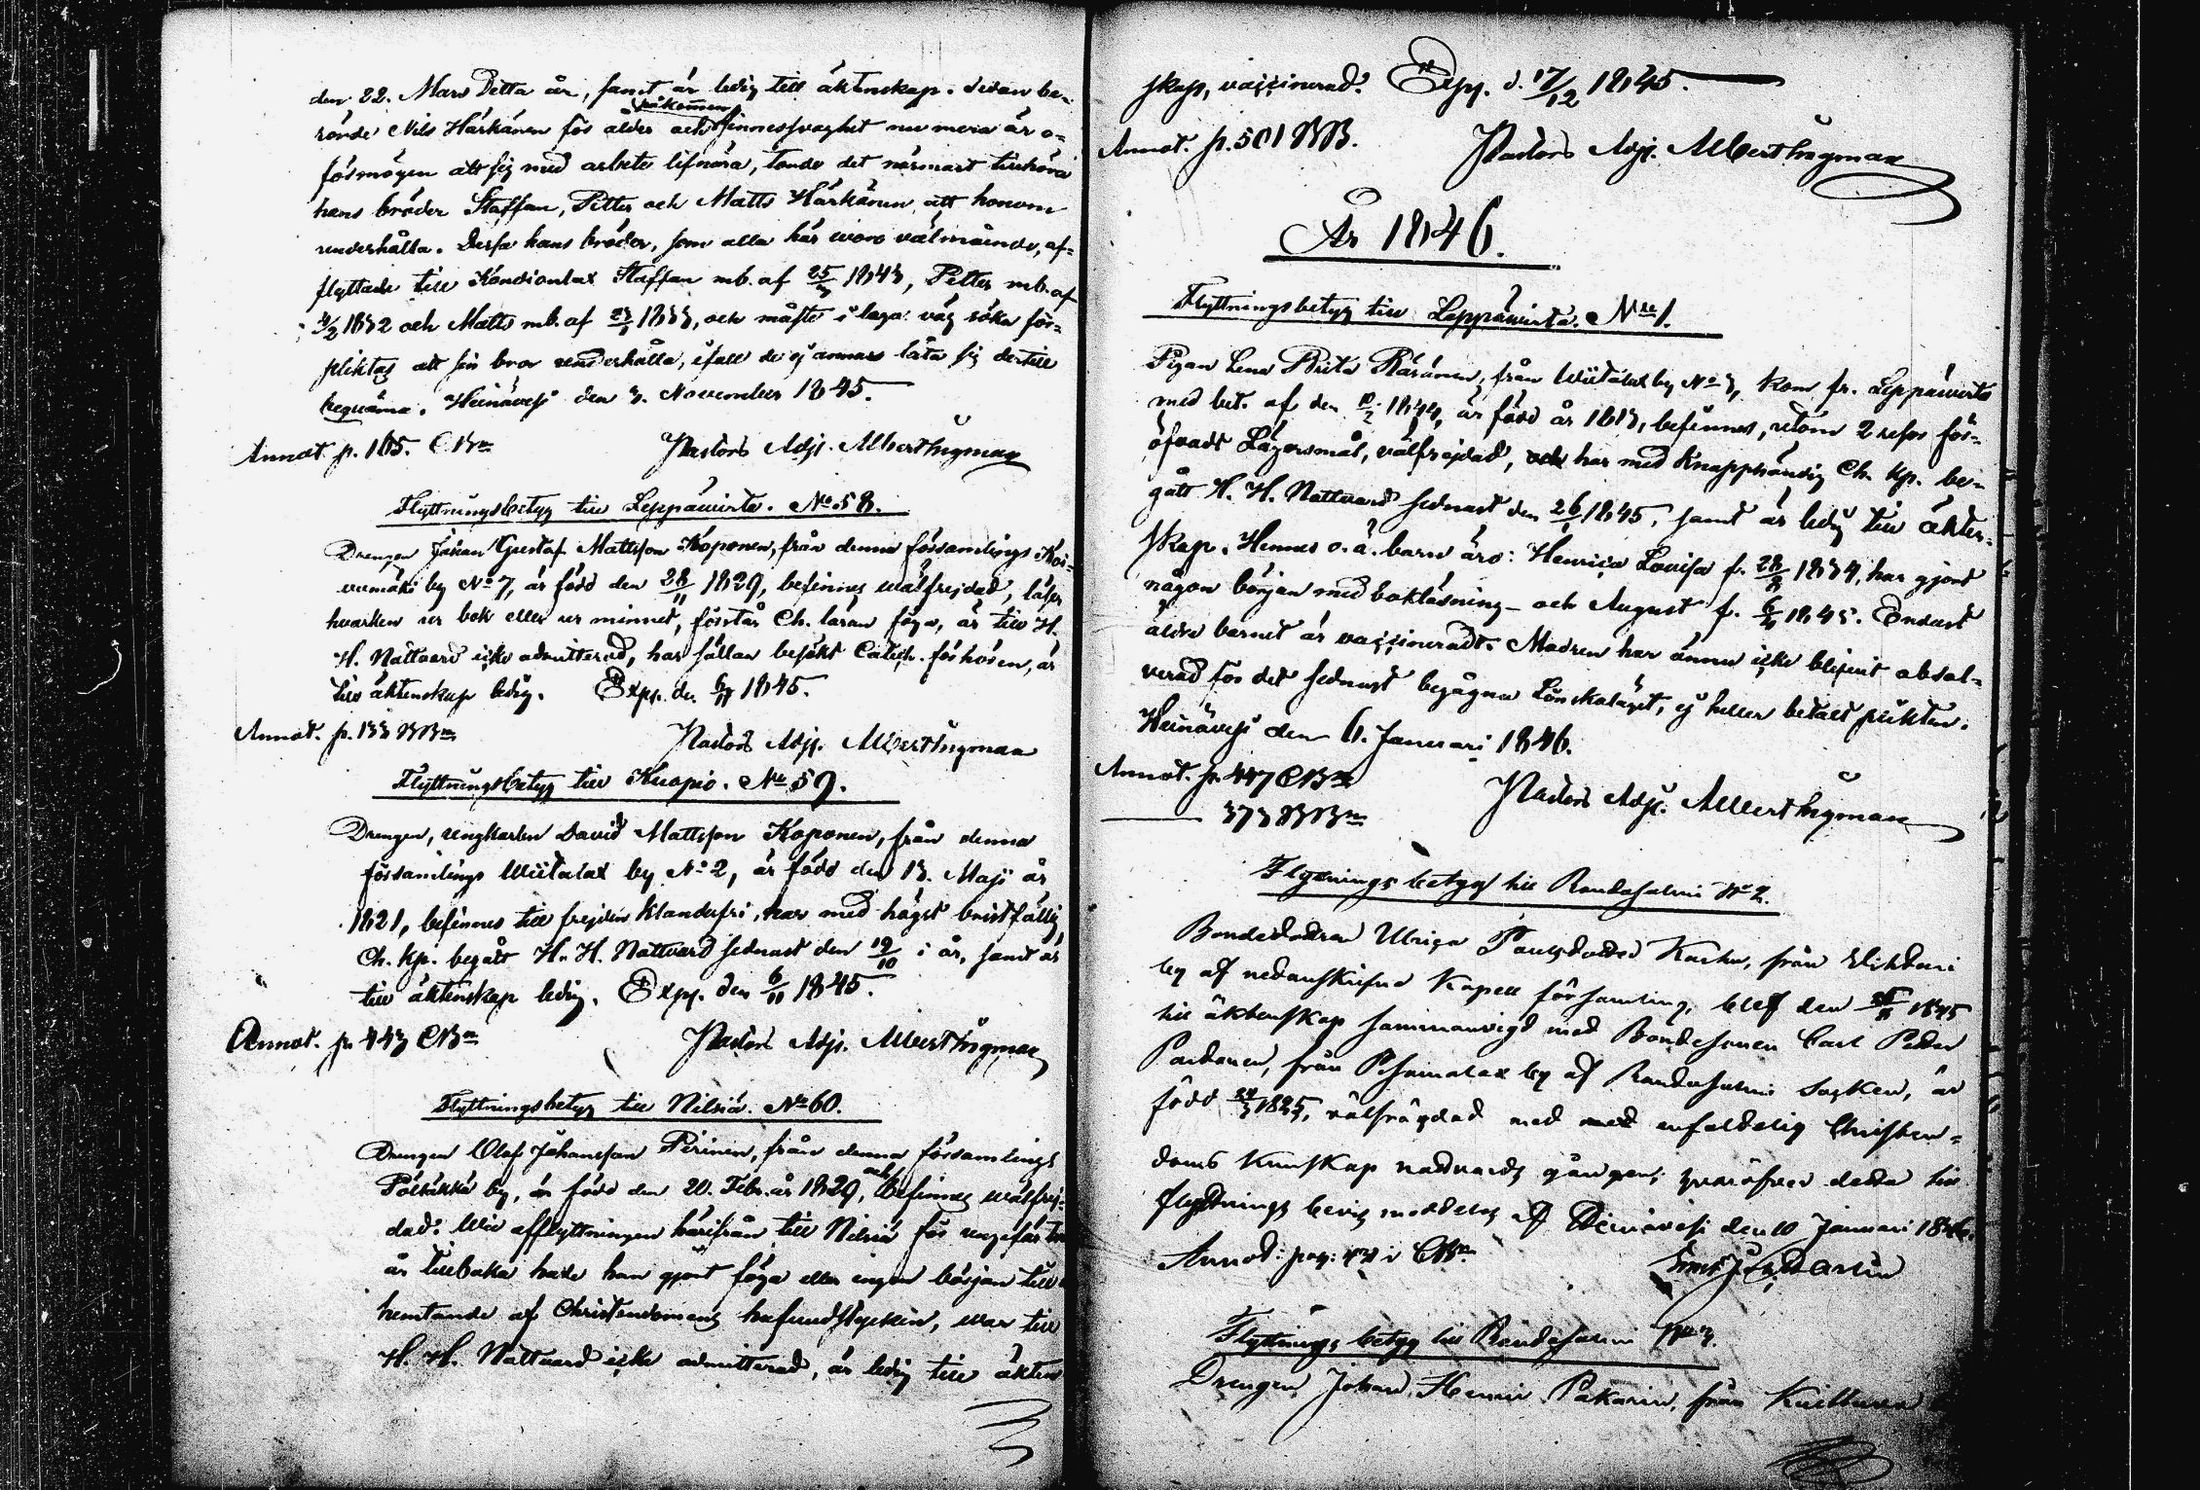 den 22. Mars Detta år, samt är ledig till äktenskap. Sedan be-
rörde Nils Härkänen för ålder och påkommen sinnessvaghet nu mera är o-
förmögen att sig med arbete lifnära, torde det närmast tillhöra
hans bröder Staffan, Petter och Matts Härkänen att honom
underhålla. Dessa hans bröder, som alla här woro välmående, af-
flyttade till Kondiontax Staffan mb. af 1843, Petter mb. af
4/2 1832 och Matts mb. af 1833, och måste i laga väg söka för-
pliktas att sin bror underhålla, ifall de ej annars låta sig dertill
beqväma. Heinävesi den 3. November 1845.
Annot. p. 165. CBn
Pastors Adj. Albert Ingman
Flyttningsbetyg till Leppäwirta. No 58.
Drengen Johan Gustaf Mattsson Koponen, från denna församlings Koi-
vumäki by No 7, är född den 28/11 1829, befinnes wälfrejdad, läser
hvarken ur bok eller ur minnet, förstår Ch. läran föga, är till H.
H. Nattward icke admitterad, har sällan besökt Catech. förhören, är
till äktenskap ledig. Exp. den 6/11 1845.
Annot. p. 133 BBn
Pastors Adj. Albert Ingman
Flyttningsbetyg till Kuopio. No 59.
Drengen, ungkarlen David Mattsson Koponen, från denna
församlings Wiitalax by No 2, är född den 13. Maji år
1821, befinnes till frejden klanderfri, har med högst bristfällig
Ch. kp. begått H. H. Nattvard sednast den 19/10 i år, samt är
till äktenskap ledig. Exp. den 6/11 1845.
Annot. p. 443 CBn
Pastors Adj. Albert Ingman
Flyttningsbetyg till Nilsiä. No 60.
Drengen Olof Johansson Pirinen, från denna församlings
Pölläkkä by, är född den 20. Febr. år 1829, och befinnes wälfrej-
dad. Wid afflyttningen härifrån till Nilsiä för ungefär
år tillbaka hade han gjort föga eller ingen början till
hemtande af Christendomens hufvudstycken, war till
H. H. Nattward icke admitterad, är ledig till äkten
skap, vaccinerad. Exp. d. 17/12 1845.
Annot. p. 501 BB.
Pastors Adj. Albert Ingman
År 1846.
Flyttningsbetyg till Leppäwirta. No 1.
Pigan Lena Brita Räsänen, från Wiitalax by No 3, kom fr. Leppäwirta
med bet. af den 1844, är född år 1813, befinnes, utom 2 resor för-
öfvadt Lägersmål, välfrejdad, och har med knapphändig Ch. kp. be-
gått H. H. Nattward sednast den 26/1 1845, samt är ledig till äkten-
skap. Hennes o. ä. barn äro: Henrica Lovisa f. 1834, har gjort
någon början med bokläsning - och August f. 1845. Endast
äldre barnet är vaccineradt. Modren har ännu icke blifvit absol-
verad för det sednast begångna Lönskaläget, ej heller betalt plikten.
Heinävesi den 6. Januari 1846.
Annot. p. 447 CBn
373 BBn
Pastors Adj. Albert Ingman
Flyttnings betyg till Randasalmi No 2.
Bondedottren Ulrica Paulsdotter Karhu, från
by af nedanskrifne Kapell församling, blef den 1845
till äktenskap sammanvigd med Bondesonen Carl Petter
Partanen, från by af Randasalmi Socken, är
född 1825, välfrägdad med enfaldelig Christen-
doms kunskap nattvards gången; hvaröfver detta till
flyttnings bevis meddelas af Heinävesi den 10 Januari 1846.
Annot: pag: i CBn
Flyttnings betyg till Randasalmi No 3.
Drengen Johan Henric Pakarin, från